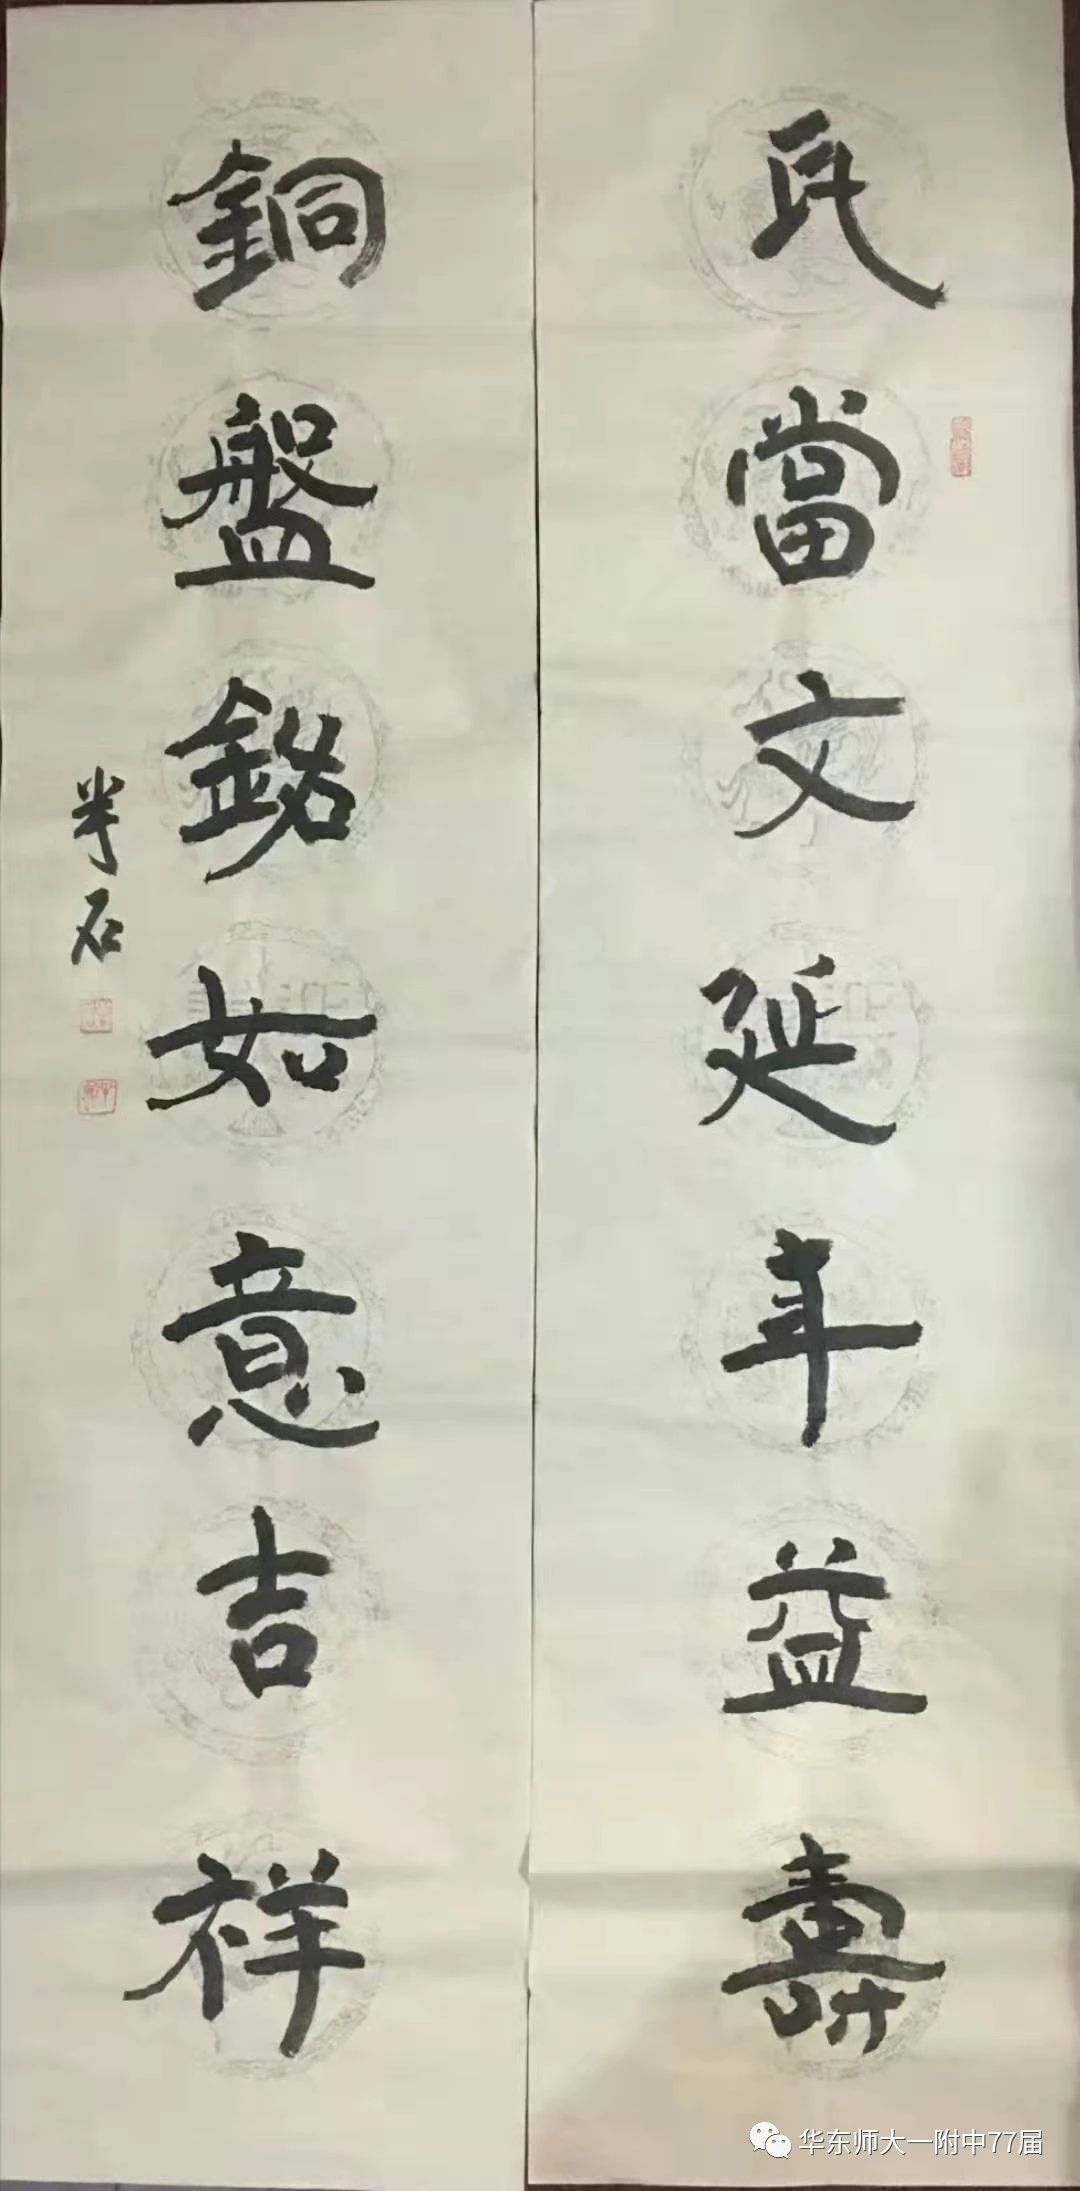 瓦當文延年益壽
銅盤銘如意吉祥
半石
华东师大一附中77届